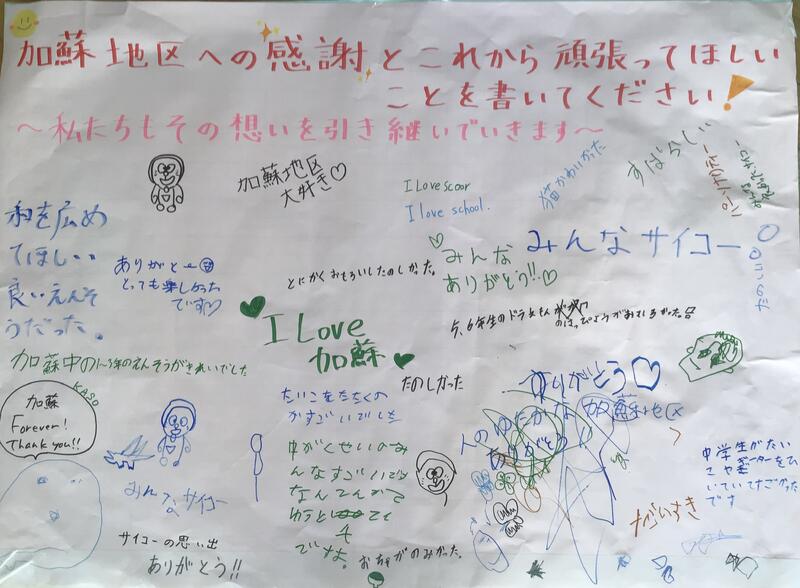 加蘇地区への感謝とこれから頑張ってほしい
ことを書いてください!
～私たちもその想いを引き継いでいきます～
加蘇地区
大好き♡
I Love scoor
I love school.
猫かわいかった
すばらしい
和を広め
てほしい
良いえんそ
うだった。
ありがとー
とっても楽しかった
です♡
とにかくおもろいしたのしかった。
みんな
ありがとう!!♡
みんなサイコー
5、6年生のドラえもん
のはっぴょうがおもしろかった。
I Love
加蘇
加蘇中の1~3年のえんそうがきれいでした
KASO
加蘇
Forever!
Thank you!!
たのしかった
たいこをたたくの
がすごいでした
ありがとう♡
人のゆたかな加蘇地区
ありがとう
中がくせいのみ
んなすごいです
なんてんかて
ゆうと
4
です。
みんなサイコー
サイコーの思い出
ありがとう!!
おちゃがのみかった。
だいすき
中学生がたい
ギターをひ
いていてすごかった
です